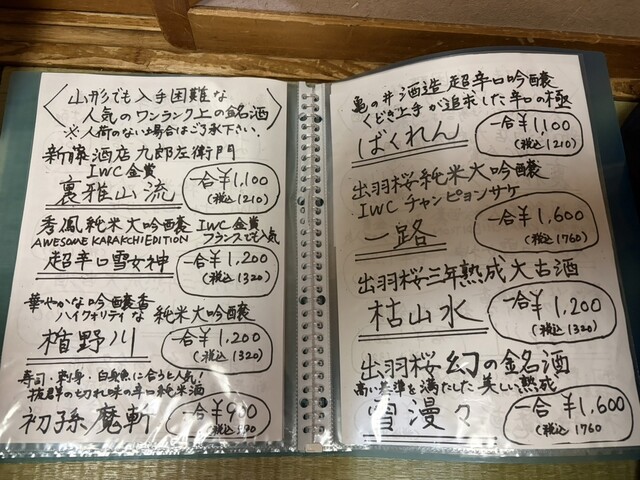 山形でも入手困難な
人気のワンランク上の銘酒
※入荷のない場合はご了承下さい.
新藤酒店 九郎左衛門
IWC 金賞
裏雅山流
一合¥1,100
(税込1210)
秀鳳 純米大吟醸 IWC 金賞
AWESOME KARAKCHI EDITION フランスでも人気
超辛口雪女神
一合¥1,200
(税込1320)
華やかな吟醸香
ハイクォリティな 純米大吟醸
楯野川
一合¥1,200
(税込1320)
寿司・刺身・白身魚に合うと人気!
抜群の切れ味の辛口純米酒
初孫 魔斬
一合¥900
(税込990
亀の井酒造 超辛口吟醸
くどき上手が追求した辛口の極
ばくれん
一合¥1,100
(税込1210)
出羽桜 純米大吟醸
IWC チャンピョンサケ
一路
一合¥1,600
(税込1760)
出羽桜三年熟成大古酒
枯山水
一合¥1,200
(税込1320)
出羽桜 幻の銘酒
高い基準を満たした美しい熟成
雪漫々
一合¥1,600
(税込1760